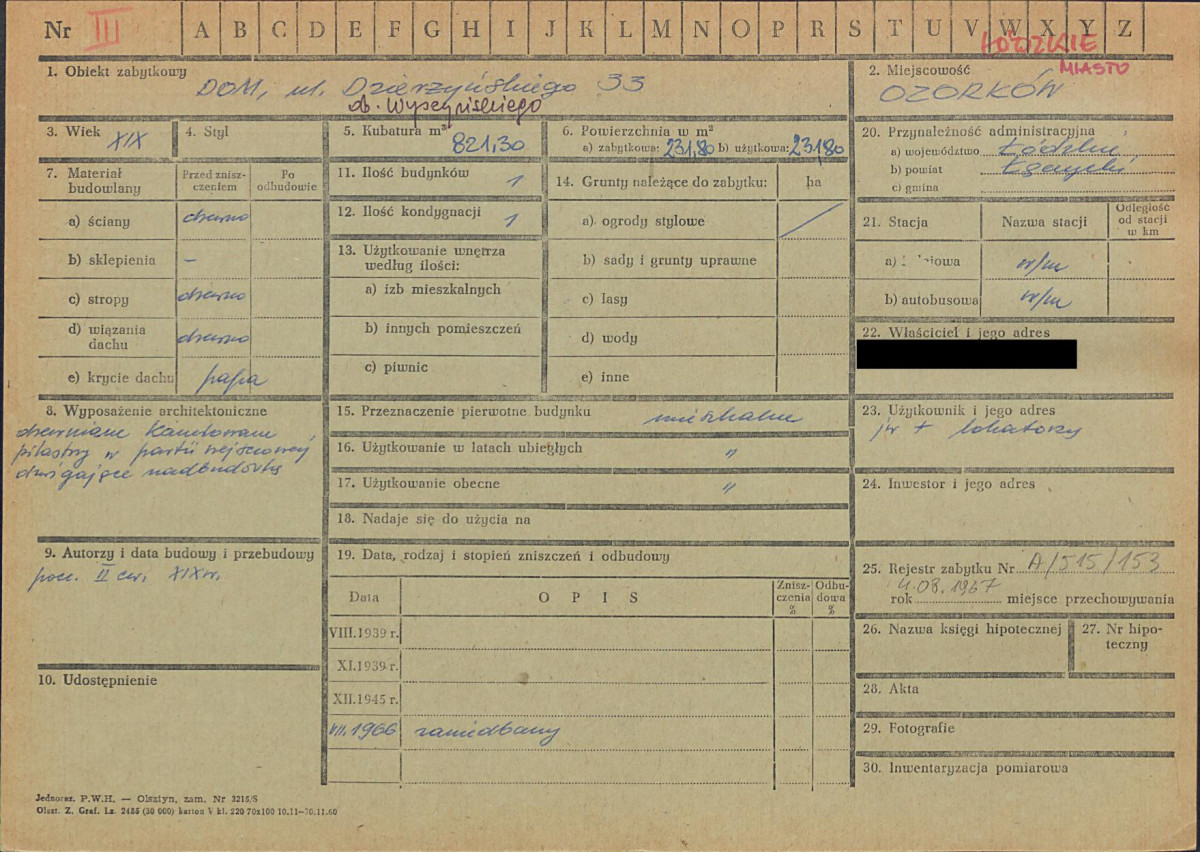 Nr III A B C D E F G H I J K L M N O P R S T U V W X Y Z
ŁÓDZKIE
MIASTO
1. Obiekt zabytkowy
DOM, ul. Dzierżyńskiego 33
ob. Wyszyńskiego
2. Miejscowość
OZORKÓW
3. Wiek XIX
4. Styl
5. Kubatura m³
821,30
6. Powierzchnia w m²
a) zabytkowa: 231,80 b) użytkowa: 231,80
7. Materiał budowlany
Przed zniszczeniem
Po odbudowie
a) ściany drewno
b) sklepienia –
c) stropy drewno
d) wiązania dachu drewno
e) krycie dachu papa
8. Wyposażenie architektoniczne
drewniane kanelowane
pilastry w partii wejściowej
dźwigające nadbudówkę
9. Autorzy i data budowy i przebudowy
pocz. II ćw. XIXw.
10. Udostępnienie
11. Ilość budynków 1
12. Ilość kondygnacji 1
13. Użytkowanie wnętrza
według ilości:
a) izb mieszkalnych
b) innych pomieszczeń
c) piwnic
14. Grunty należące do zabytku: ha
a) ogrody stylowe
b) sady i grunty uprawne
c) lasy
d) wody
e) inne
15. Przeznaczenie pierwotne budynku mieszkalne
16. Użytkowanie w latach ubiegłych "
17. Użytkowanie obecne "
18. Nadaje się do użycia na
19. Data, rodzaj i stopień zniszczeń i odbudowy
Data
O P I S
Zniszczenia %
Odbudowa %
VIII.1939 r.
XI.1939 r.
XII.1945 r.
VII.1966 zaniedbany
20. Przynależność administracyjna
a) województwo Łódzkie
b) powiat Łęczycki
c) gmina
21. Stacja
Nazwa stacji
Odległość od stacji w km
a) w/m
b) autobusowa w/m
22. Właściciel i jego adres
23. Użytkownik i jego adres
jw + lokatorzy
24. Inwestor i jego adres
25. Rejestr zabytku Nr A/515/153
4.08.1967
rok miejsce przechowywania
26. Nazwa księgi hipotecznej
27. Nr hipoteczny
28. Akta
29. Fotografie
30. Inwentaryzacja pomiarowa
Jednoraz. P.W.H. — Olsztyn, zam. Nr 3215/S
Olszt. Z. Graf. Lz. 2485 (30 000) karton V kl. 220 70x100 10.11—70.11.60